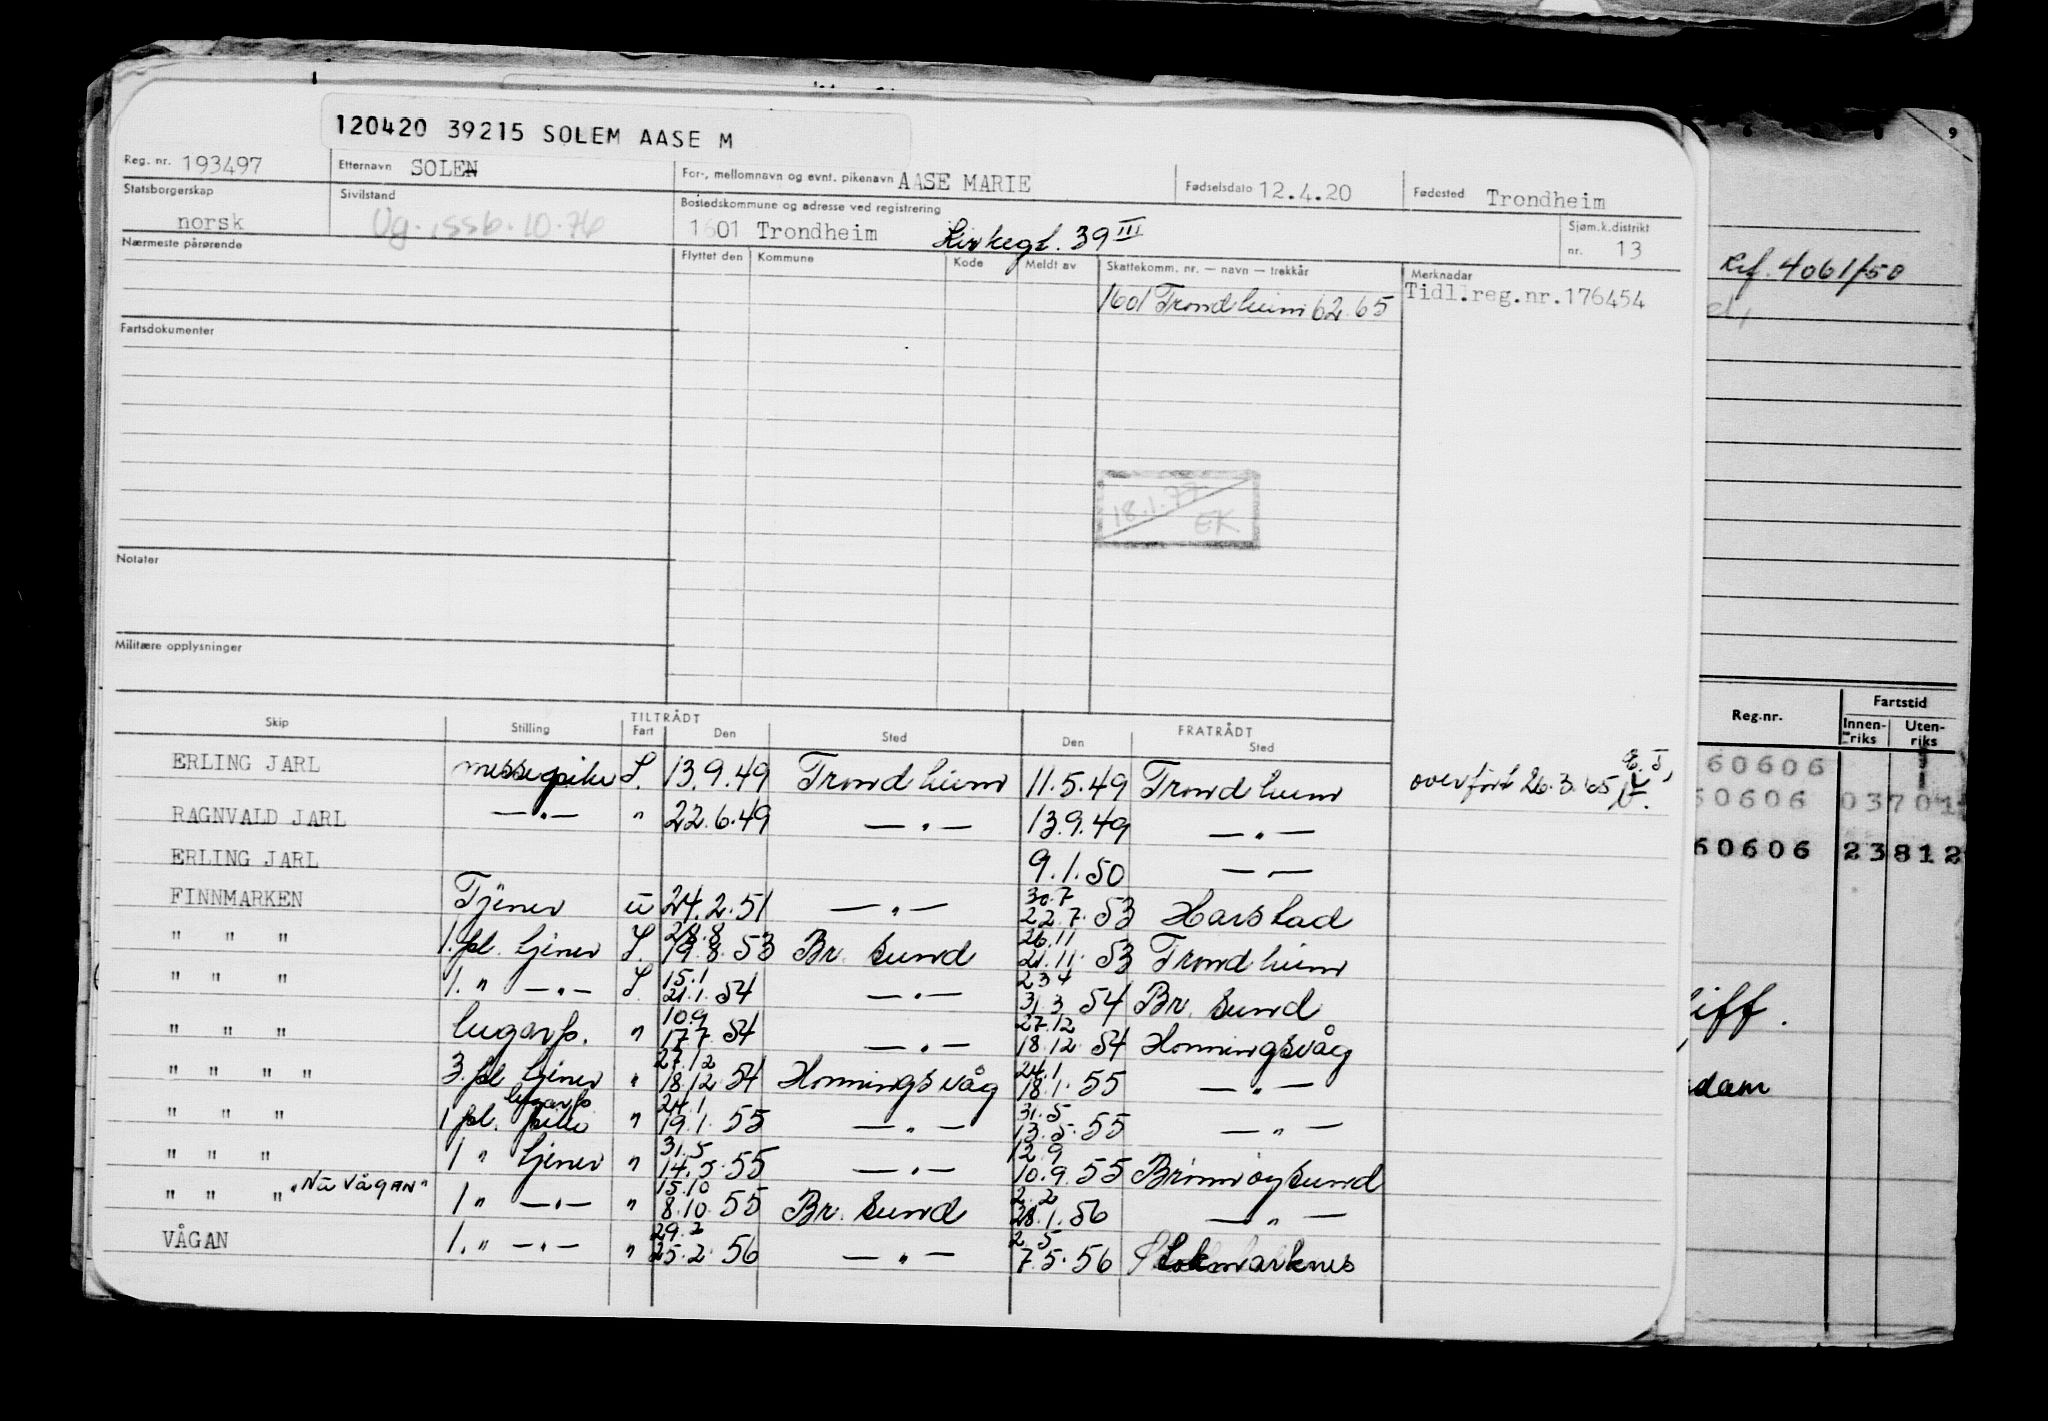 120420 39215 SOLEM AASE M
Reg. nr. 193497 Etternavn SOLEN For-, mellomnavn og evnt. pikenavn AASE MARIE Fødselsdato 12.4.20 Fødested Trondheim
Statsborgerskap norsk Sivilstand Ug., ssb. 10.76 Bostedskommune og adresse ved registrering 1601 Trondheim Kirkegt. 39 III Sjøm.k.distrikt nr. 13
Nærmeste pårørende Flyttet den Kommune Kode Meldt av Skattekomm. nr. — navn — trekkår Merknader
1601 Trondheim 62.65 Tidl.reg.nr.176454
Fartsdokumenter
18.1.77 EK
Notater
Militære opplysninger
Skip Stilling TILTRÅDT Fart Den Sted FRATRÅDT Den Sted
ERLING JARL messepike L. 13.9.49 Trondheim 11.5.49 Trondheim overført 26.3.65
RAGNVALD JARL —"— " 22.6.49 —"— 13.9.49 —"—
ERLING JARL 9.1.50 —"—
FINNMARKEN Tjener u 24.2.51 —"— 30.7 22.7.53 Harstad
" " " 1. pl. tjener L. 28.8 19.8.53 Br. sund 26.11 21.11.53 Trondheim
" " " 1. " —"— L. 15.1 21.1.54 —"— 23 4 31.3 54 Br. sund
" " " lugarp. " 10.9 17.7.54 —"— 27.12 18.12.54 Honningsvåg
" " " " 3. pl. tjener " 27.12 18.12.54 Honningsvåg 24.1 18.1.55 —"—
" " " 1 pl. lugarp. pike " 24.1 19.1.55 —"— 31.5 13.5.55 —"—
" " " 1 " tjener " 31.5 14.5.55 —"— 12.9 10.9.55 Brønnøysund
" " " "Nå VÅGAN" 1 " —"— " 15.10 8.10.55 Br. sund 2.2 28.1.56 —"—
VÅGAN 1. " —"— " 29.2 25.2.56 —"— 2 5 7.5.56 Stokmarknes
9
Ref. 4061/50
Reg.nr. Fartstid
Innen-riks Uten-riks
60606
60606 03701
60606 23812
iff.
dam